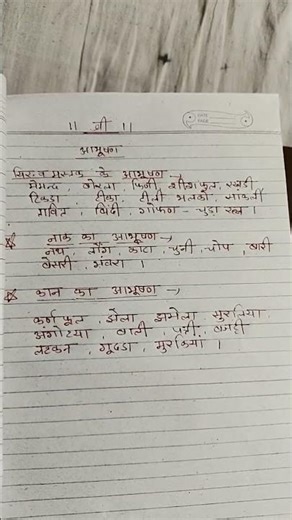 ।। श्री ।।
आभूषण
सिर व मस्तक के आभूषण →
मेमन्द, बोरला, फिनी, शीशफूल, रखडी
टिकड़ा, टीका, टीडी भलको, सांकली
मावित, बिंदी, गोफण - चुड़ा रत्न ।
नाक का आभूषण →
नथ, लौंग, कांटा, चुनी, चोप, बारी
बेसरी, भंवरा ।
कान का आभूषण →
कर्ण फूल, झेला, झमेला, सुरलिया
अंगोट्या, बाली, पत्ती, बजटी
लटकन, गूदडा, मुरकिया ।